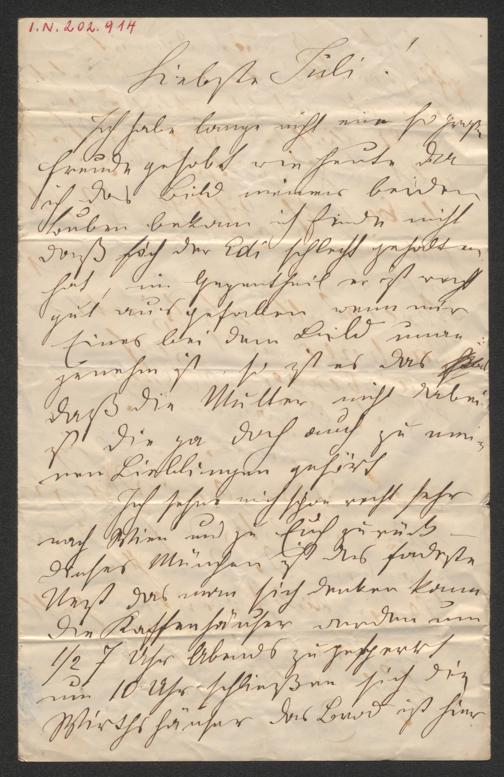 I.N. 202.914
Liebste Juli!
Ich habe lange nicht eine so große
Freude gehabt wie heute da
ich das Bild meiner beiden
Buben bekam ich finde nicht
daß sich der Edi schlecht gehalten
hat, im Gegentheil er ist recht
gut ausgefallen wenn mir
Eines bei dem Bild unan
genehm ist so ist es das
daß die Mutter nicht dabei
ist die ja doch auch zu mei
nen Lieblingen gehört
Ich sehne mich schon recht sehr
nach Wien und zu Euch zurück
dieses München ist das fadeste
Nest das man sich denken kann
die Kaffenhäuser werden um
1/2 7 Uhr Abends zugesperrt
um 10 Uhr schließen sich die
Wirthshäuser das Brod ist hier